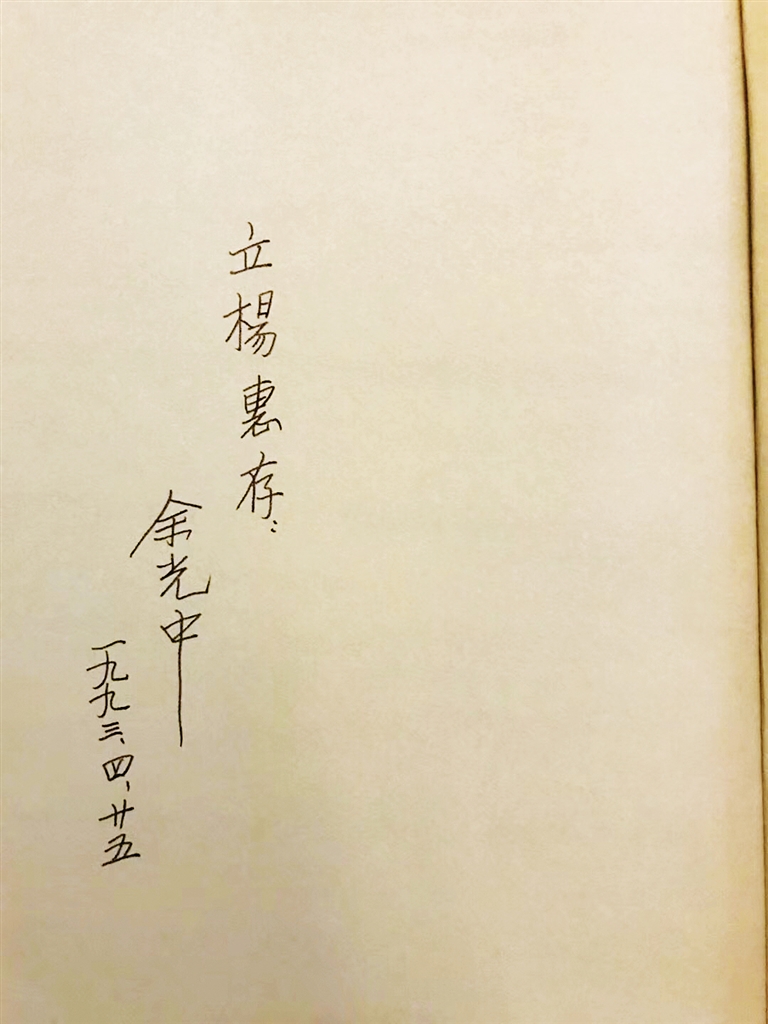 立楊惠存：
余光中
一九九三、四、廿五